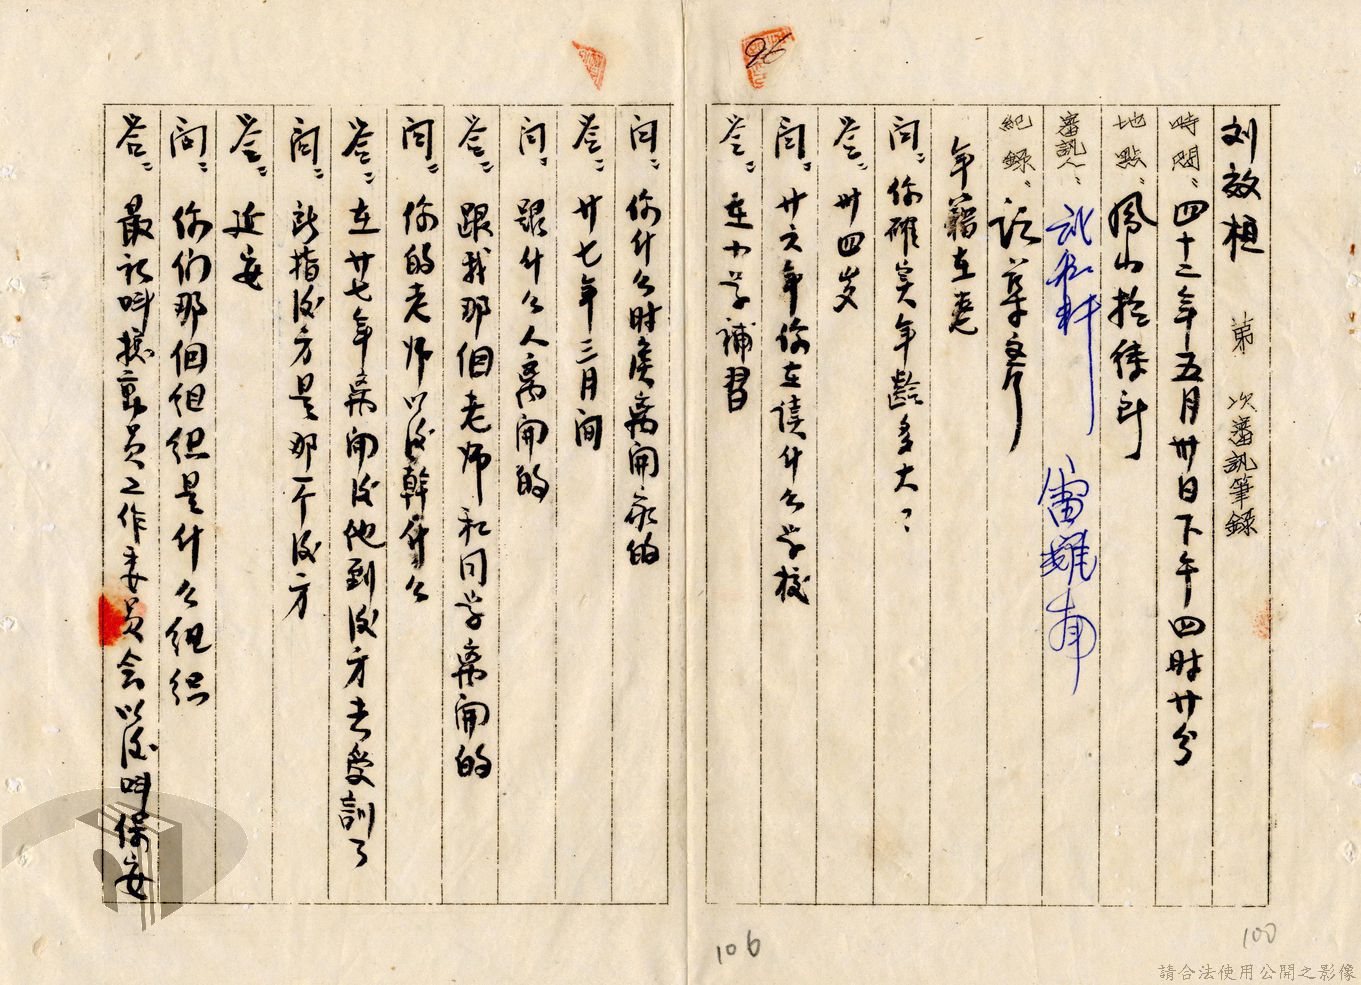 刘效桓 第 次審訊筆錄
時間：四十二年五月卅日下午四时廿分
地點：鳳山招待所
審訊人：
紀錄：
年籍在卷
问：你確实年龄多大？
答：卅四岁
问：廿六年你在读什么学校
答：在小学補習
问：你什么时候离開家的
答：廿七年三月间
问：跟什么人离開的
答：跟我那個老师和同学离開的
问：你的老师以後幹什么
答：在廿七年离開後他到後方去受訓了
问：所指後方是那一个後方
答：延安
问：你们那個组织是什么组织
答：最初叫擴动員工作委員会以後叫保安
96
106
100
請合法使用公開之影像